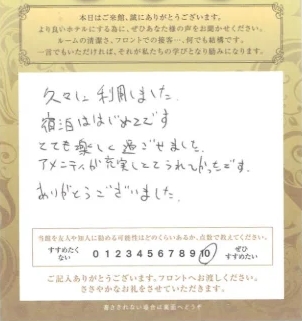 本日はご来館、誠にありがとうございます。
より良いホテルにする為に、ぜひあなた様の声をお聞かせください。
ルームの清潔さ、フロントでの接客…何でも結構です。
一言でもいただければ、それが私たちの学びとなり励みになります。
久々に利用しました.
宿泊ははじめてです
とても楽しく過ごせました.
アメニティが充実しててうれしかったです.
ありがとうございました.
当館を友人や知人に勧める可能性はどのくらいあるか、点数で教えてください。
すすめたくない 0 1 2 3 4 5 6 7 8 9 10 ぜひすすめたい
ご記入ありがとうございます。フロントへお渡しください。
ささやかなお礼をさせていただきます。
書ききれない場合は裏面へどうぞ